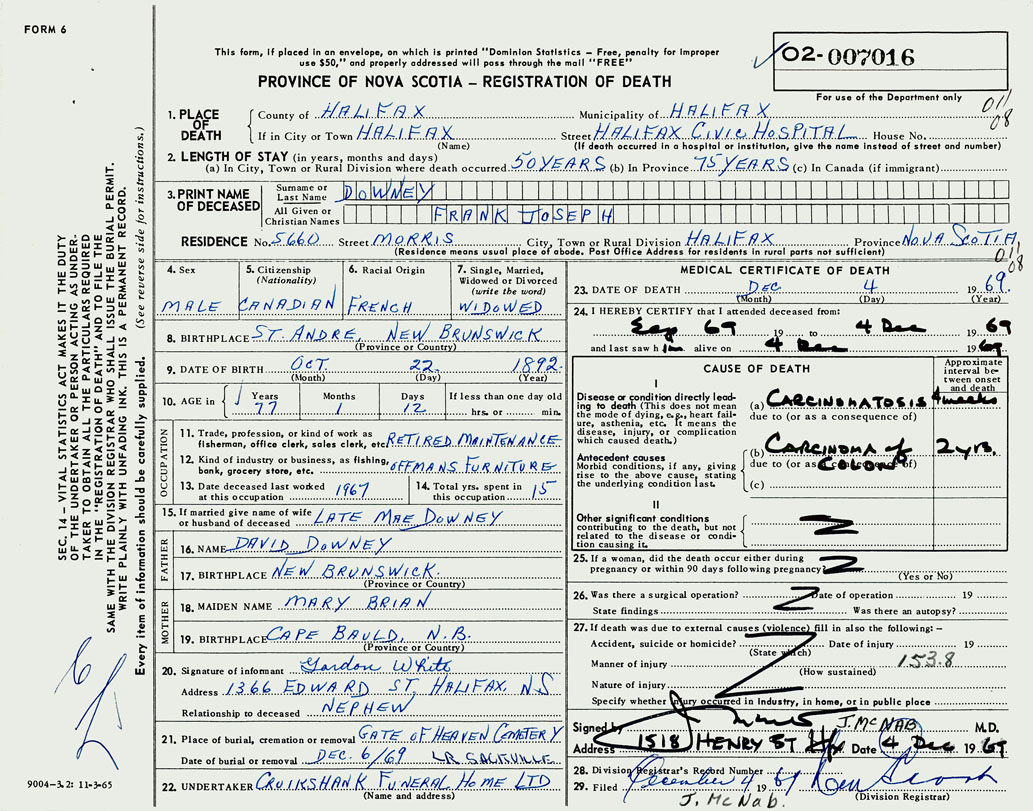 FORM 6
This form, if placed in an envelope, on which is printed "Dominion Statistics — Free, penalty for improper
use $50," and properly addressed will pass through the mail "FREE"
02-007016
PROVINCE OF NOVA SCOTIA — REGISTRATION OF DEATH
For use of the Department only
011
08
1. PLACE OF DEATH
County of HALIFAX Municipality of HALIFAX
If in City or Town HALIFAX Street HALIFAX CIVIC HOSPITAL House No.
(Name) (If death occurred in a hospital or institution, give the name instead of street and number)
2. LENGTH OF STAY (in years, months and days)
(a) In City, Town or Rural Division where death occurred 50 YEARS (b) In Province 75 YEARS (c) In Canada (if immigrant)
3. PRINT NAME OF DECEASED
Surname or Last Name DOWNEY
All Given or Christian Names FRANK JOSEPH
RESIDENCE No. 5660 Street MORRIS City, Town or Rural Division HALIFAX Province NOVA SCOTIA
(Residence means usual place of abode. Post Office Address for residents in rural parts not sufficient)
011
08
4. Sex MALE
5. Citizenship (Nationality) CANADIAN
6. Racial Origin FRENCH
7. Single, Married, Widowed or Divorced (write the word) WIDOWED
8. BIRTHPLACE ST. ANDRE, NEW BRUNSWICK
(Province or Country)
9. DATE OF BIRTH OCT. 22 1892
(Month) (Day) (Year)
10. AGE in Years 77 Months 1 Days 12 If less than one day old
hrs. or min.
OCCUPATION
11. Trade, profession, or kind of work as fishermen, office clerk, sales clerk, etc. RETIRED MAINTENANCE
12. Kind of industry or business, as fishing, bank, grocery store, etc. OFFMANS FURNITURE
13. Date deceased last worked at this occupation 1967
14. Total yrs. spent in this occupation 15
15. If married give name of wife or husband of deceased LATE MAE DOWNEY
FATHER
16. NAME DAVID DOWNEY
17. BIRTHPLACE NEW BRUNSWICK.
(Province or Country)
MOTHER
18. MAIDEN NAME MARY BRIAN
19. BIRTHPLACE CAPE BAULD, N.B.
(Province or Country)
20. Signature of informant Gordon White
Address 1366 EDWARD ST, HALIFAX, N.S
Relationship to deceased NEPHEW
21. Place of burial, cremation or removal GATE OF HEAVEN CEMETERY
Date of burial or removal DEC. 6/69 LR. SACKVILLE.
22. UNDERTAKER CRUIKSHANK FUNERAL HOME LTD
(Name and address)
MEDICAL CERTIFICATE OF DEATH
23. DATE OF DEATH DEC 4 1969.
(Month) (Day) (Year)
24. I HEREBY CERTIFY that I attended deceased from:
Sep 69 19 to 4 Dec 1969
and last saw him alive on 4 Dec 1969
CAUSE OF DEATH
Approximate interval between onset and death
I
Disease or condition directly leading to death (This does not mean the mode of dying, e.g., heart failure, asthenia, etc. It means the disease, injury, or complication which caused death.)
(a) CARCINOMATOSIS 4 weeks
due to (or as a consequence of)
Antecedent causes
Morbid conditions, if any, giving rise to the above cause, stating the underlying condition last.
(b) CARCINOMA of COLON 2 yrs.
due to (or as a consequence of)
(c)
II
Other significant conditions contributing to the death, but not related to the disease or condition causing it.
25. If a woman, did the death occur either during pregnancy or within 90 days following pregnancy?
(Yes or No)
26. Was there a surgical operation? Date of operation 19
State findings Was there an autopsy?
27. If death was due to external causes (violence) fill in also the following:—
Accident, suicide or homicide? Date of injury 19
(State which)
153.8
Manner of injury
(How sustained)
Nature of injury
Specify whether injury occurred in industry, in home, or in public place
Signed by J. MCNAB M.D.
Address 1518 HENRY ST Hfx Date 4 Dec 1969
28. Division Registrar's Record Number
29. Filed December 4 1969
(Division Registrar)
J. McNab.
SEC. 14 — VITAL STATISTICS ACT MAKES IT THE DUTY
OF THE UNDERTAKER OR PERSON ACTING AS UNDER-
TAKER TO OBTAIN ALL THE PARTICULARS REQUIRED
IN THE "REGISTRATION OF DEATH" AND TO FILE THE
SAME WITH THE DIVISION REGISTRAR WHO SHALL ISSUE THE BURIAL PERMIT.
WRITE PLAINLY WITH UNFADING INK. THIS IS A PERMANENT RECORD.
Every item of information should be carefully supplied. (See reverse side for instructions.)
9004-3.2: 11-3-65